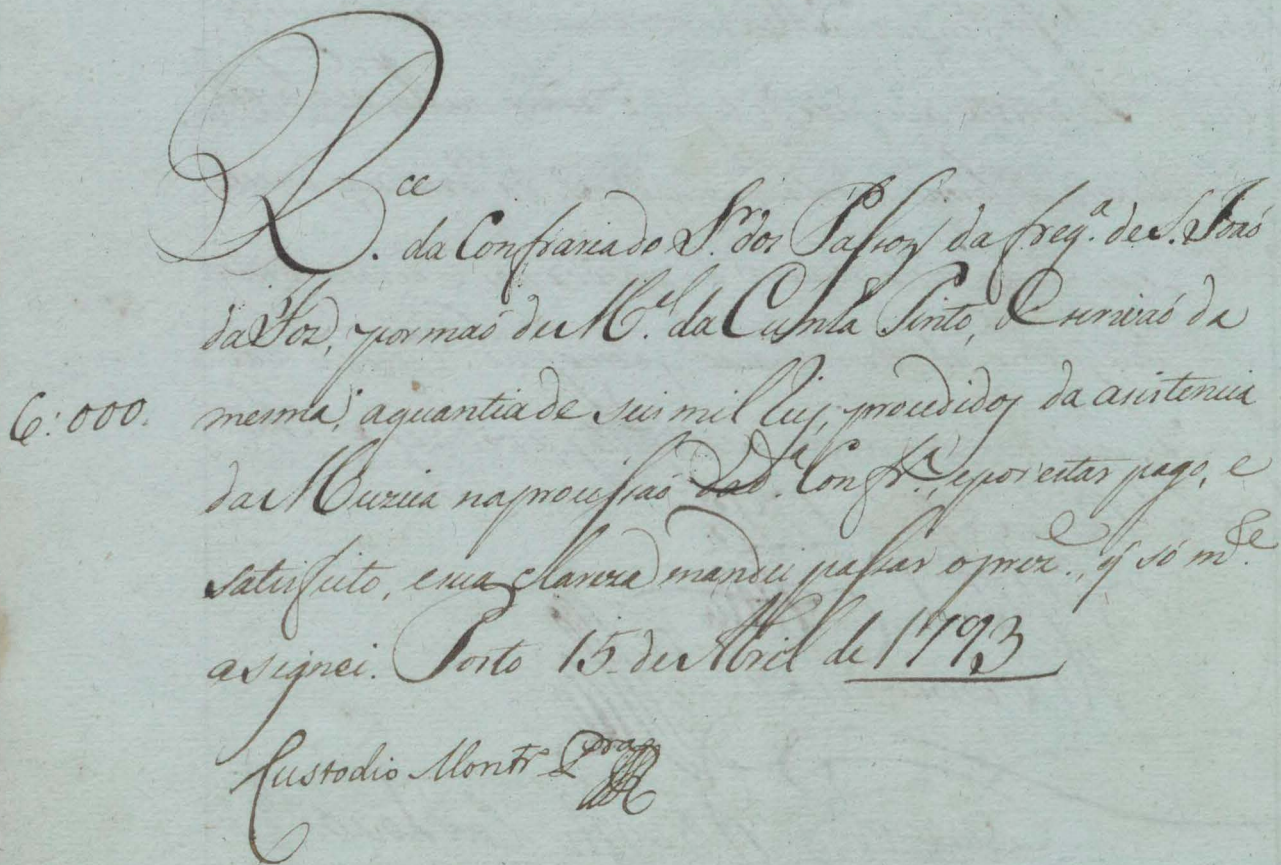 R.ce da Confraria do Sr. dos Passos da freg.ª de S. Joaõ
da Foz, por maõ de M.el da Cunha Pinto, Escrivaõ da
6:000. mesma, a quantia de seis mil Reis, procedidos da asistencia
da Muzica na procissaõ da d.ª Confr.ª, e por estar pago, e
satisfeito, e sua clareza mandei passar o prez.e, q̃ só m.te
asignei. Porto 15 de Abril de 1793
Custodio Montr.º Prª